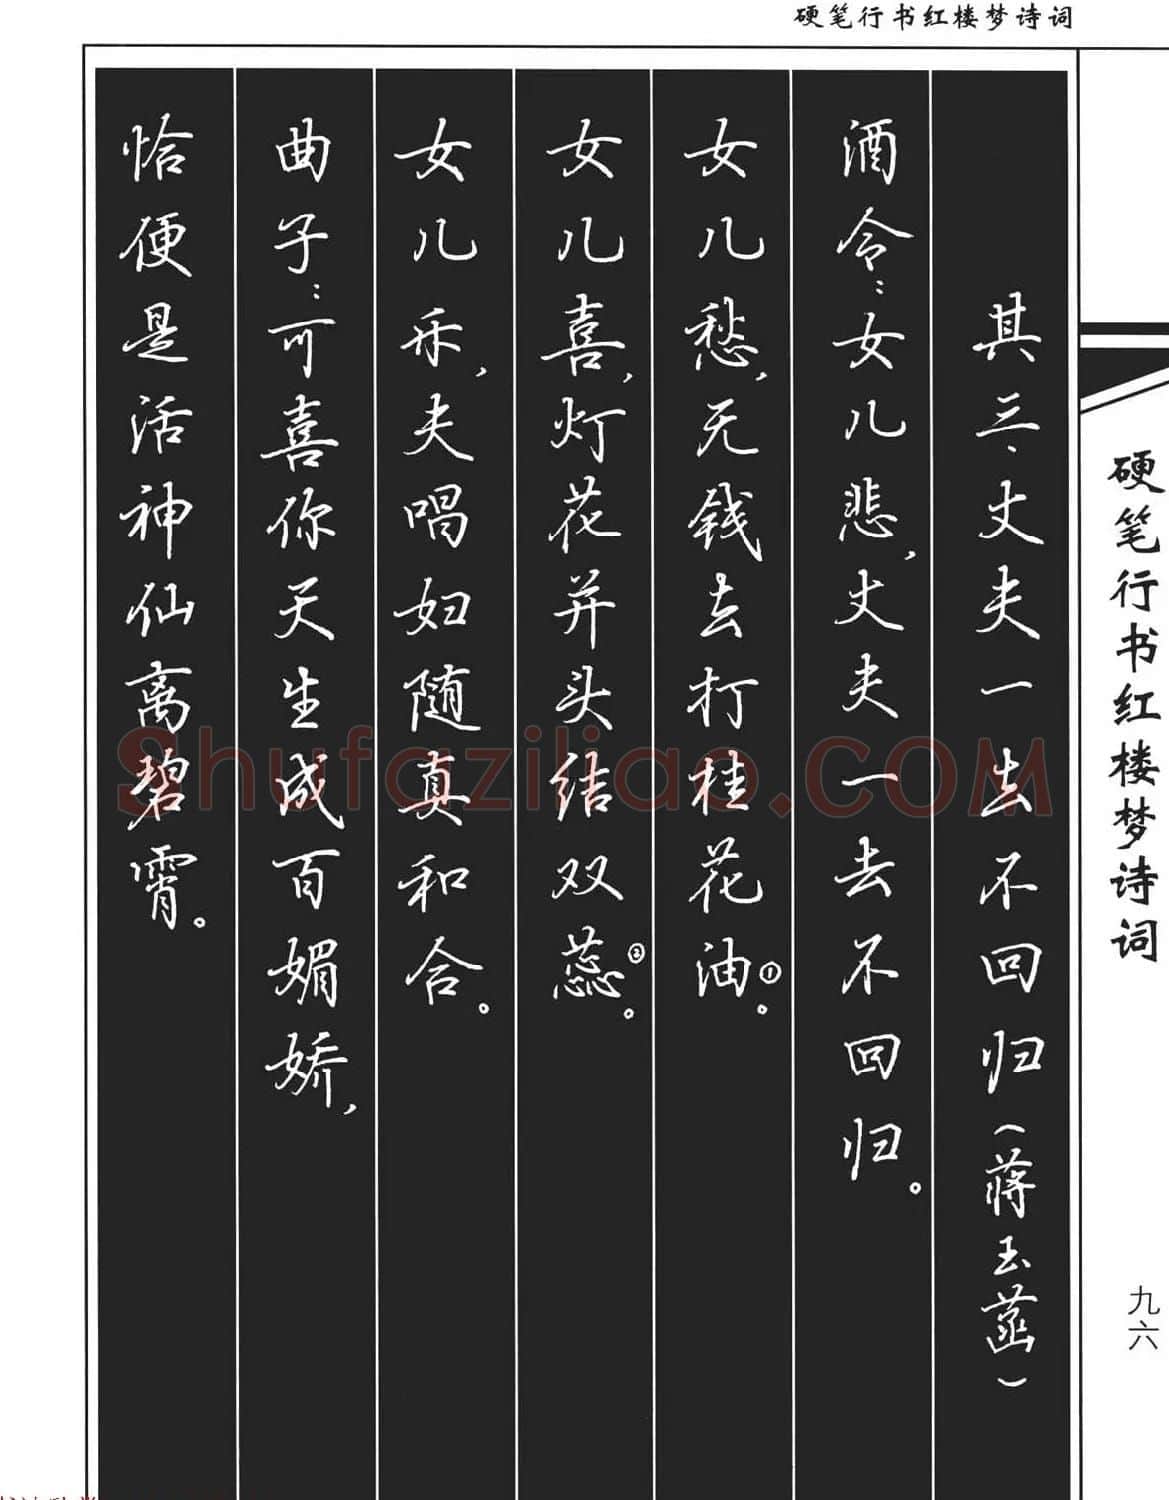 硬笔行书红楼梦诗词
其三、丈夫一去不回归（蒋玉菡）
酒令：女儿悲，丈夫一去不回归。
女儿愁，无钱去打桂花油①。
女儿喜，灯花并头结双蕊②。
女儿乐，夫唱妇随真和合。
曲子：可喜你天生成百媚娇，
恰便是活神仙离碧霄。
硬笔行书红楼梦诗词
九六
Shufaziliao.COM